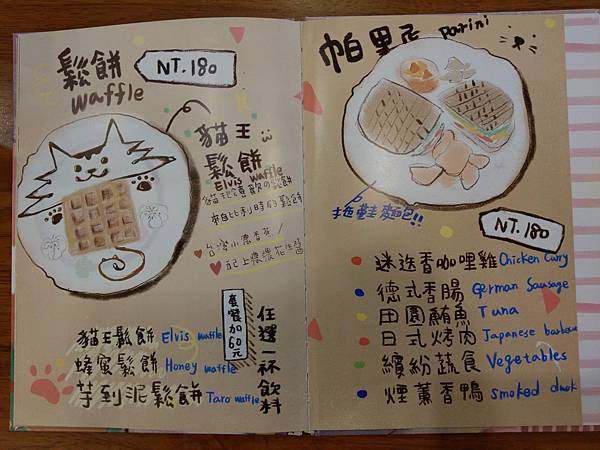 鬆餅
Waffle
NT.180
貓王
鬆餅
Elvis waffle
來自比利時的鬆餅
台灣小農香蕉/
套餐加60元
任選一杯飲料
貓王鬆餅 Elvis waffle
蜂蜜鬆餅 Honey waffle
芋到泥鬆餅 Taro waffle
帕里尼 parini
拖鞋麵包!!
NT.180
迷迭香咖哩雞 Chicken Curry
德式香腸 German Sausage
田園鮪魚 Tuna
日式烤肉 Japanese barbecue
繽紛蔬食 Vegetables
煙薰香鴨 smoked duck